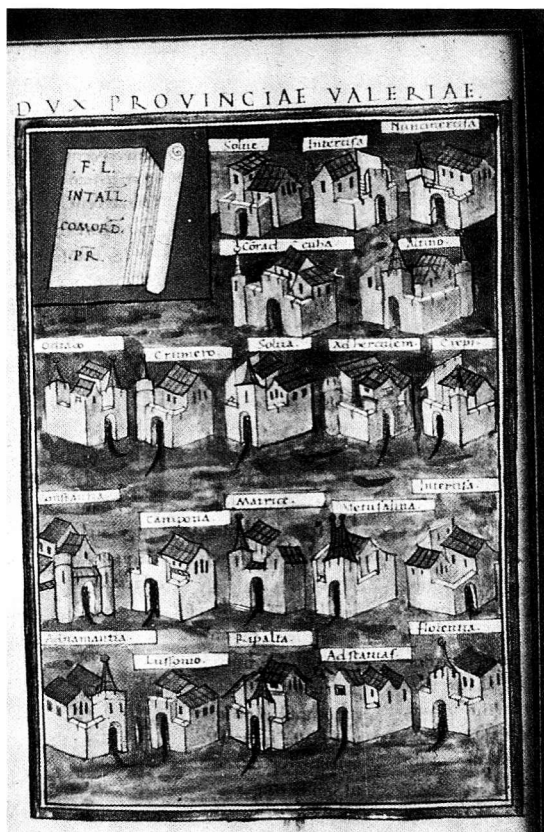 DVX PROVINCIAE VALERIAE.
.F. L.
INTALL.
COMORD.
.PR.
Solue. Intercisa.
Cuba. Altino.
Crumero. Solua. Ad herculem. Cirpi.
Constantia.
Campona. Matrice. Vetusalina. Intercisa.
Adnamantia.
Lussonio. Ripalta. Ad statuas. Florentia.